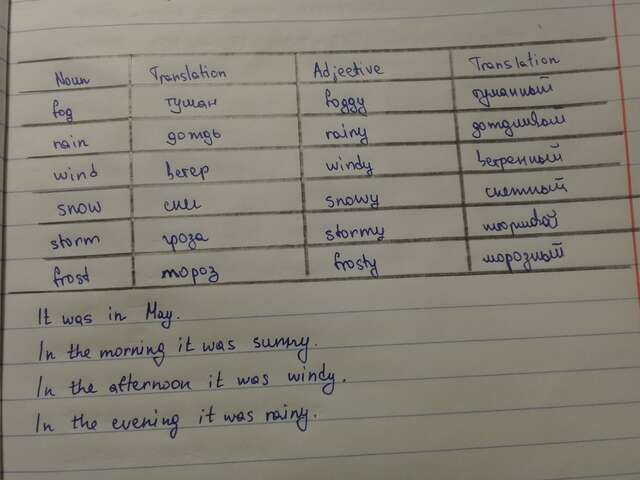 Noun Translation Adjective Translation
fog туман foggy туманный
rain дождь rainy дождливый
wind ветер windy ветренный
snow снег snowy снежный
storm гроза stormy
frost мороз frosty морозный
It was in May.
In the morning it was sunny.
In the afternoon it was windy.
In the evening it was rainy.